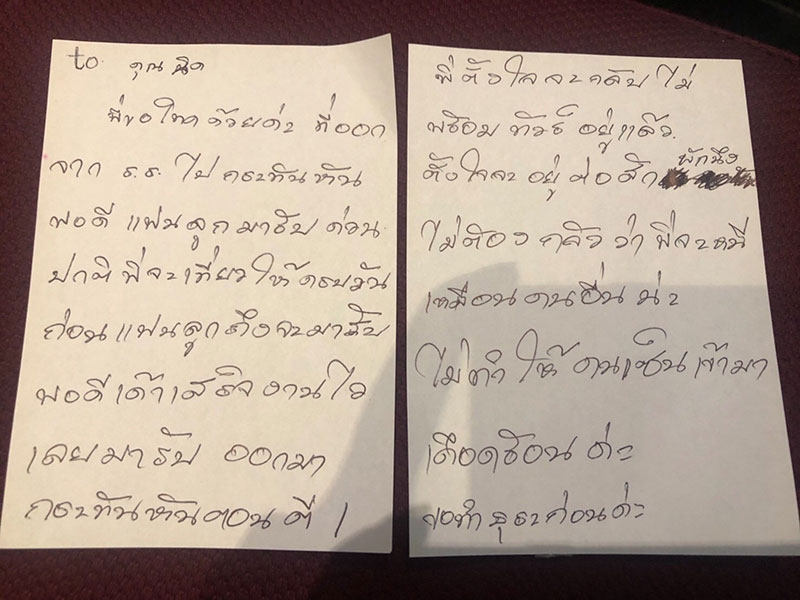 to. คุณ นิด
พี่ขอโทษ ด้วยค่ะ ที่ออก
จาก ร.ร. ไป กระทันหัน
พอดี แฟนลูกมารับ ด่วน
ปกติ พี่จะเที่ยวให้ครบวัน
ก่อน แฟนลูกถึงจะมารับ
พอดี เค้าเสร็จ งานไว
เลยมารับ ออกมา
กระทันหันตอน ตี 1
พี่ตั้งใจ จะกลับ ไม่
พร้อม ทัวร์ อยู่แล้ว.
ตั้งใจจะ อยู่ ต่อ สัก พักนึง
ไม่ต้อง กลัว ว่า พี่จะหนี
เหมือน คนอื่น น่ะ
ไม่ทำ ให้ คนเซ็น เข้ามา
เดือดร้อน ค่ะ
ขอทำ ธุระก่อนค่ะ